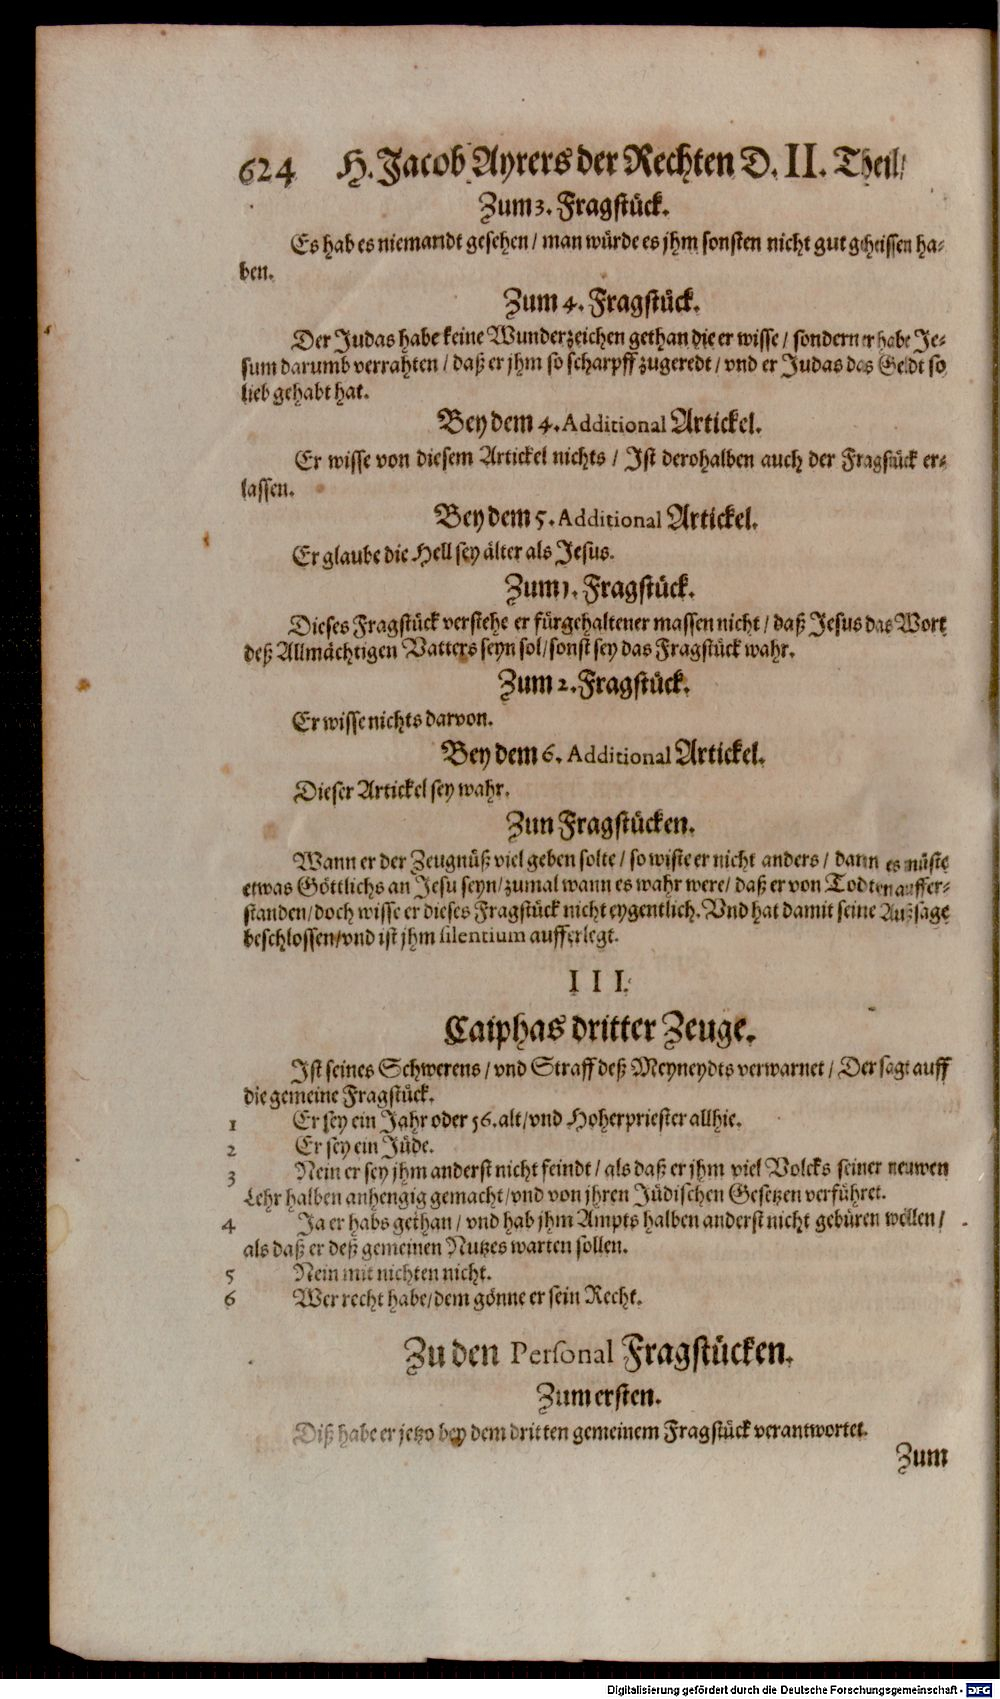 624 H. Jacob Ayrers der Rechten D. II. Theil/
Zum 3. Fragstück.
Es hab es niemandt gesehen / man würde es jhm sonsten nicht gut geheissen ha-
ben.
Zum 4. Fragstück.
Der Judas habe keine Wunderzeichen gethan die er wisse / sondern er habe Je-
sum darumb verrahten / daß er jhm so scharpff zugeredt / vnd er Judas das Geldt so
lieb gehabt hat.
Bey dem 4. Additional Artickel.
Er wisse von diesem Artickel nichts / Ist derohalben auch der Fragstück er-
lassen.
Bey dem 5. Additional Artickel.
Er glaube die Hell sey älter als Jesus.
Zum 1. Fragstück.
Dieses Fragstück verstehe er fürgehaltener massen nicht / daß Jesus das Wort
deß Allmächtigen Vatters seyn sol / sonst sey das Fragstück wahr.
Zum 2. Fragstück.
Er wisse nichts darvon.
Bey dem 6. Additional Artickel.
Dieser Artickel sey wahr.
Zun Fragstücken.
Wann er der Zeugnüß viel geben solte / so wiste er nicht anders / dann es müste
etwas Göttlichs an Jesu seyn / zumal wann es wahr were / daß er von Todten auffer-
standen / doch wisse er dieses Fragstück nicht eygentlich. Vnd hat damit seine Außsage
beschlossen / vnd ist jhm silentium aufferlegt.
III.
Caiphas dritter Zeuge.
Ist seines Schwerens / vnd Straff deß Meyneydts verwarnet / Der sagt auff
die gemeine Fragstück.
1 Er sey ein Jahr oder 56. alt / vnd Hoherpriester allhie.
2 Er sey ein Jüde.
3 Nein er sey jhm anderst nicht feindt / als daß er jhm viel Volcks seiner neuwen
Lehr halben anhengig gemacht / vnd von jhren Jüdischen Gesetzen verführet.
4 Ja er habs gethan / vnd hab jhm Ampts halben anderst nicht gebüren wöllen /
als daß er deß gemeinen Nutzes warten sollen.
5 Nein mit nichten nicht.
6 Wer recht habe / dem gönne er sein Recht.
Zu den Personal Fragstücken.
Zum ersten.
Diß habe er jetzo bey dem dritten gemeinem Fragstück verantwortet.
Zum
Digitalisierung gefördert durch die Deutsche Forschungsgemeinschaft - DFG